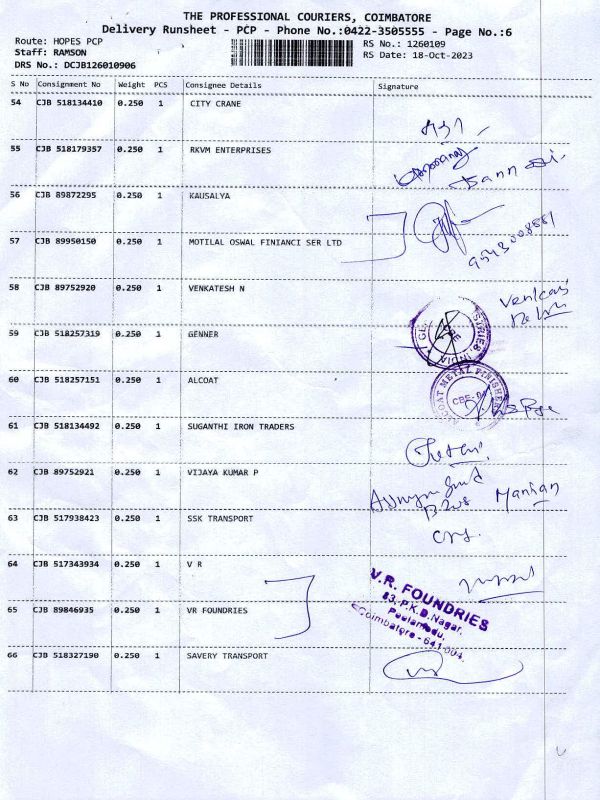 THE PROFESSIONAL COURIERS, COIMBATORE
Delivery Runsheet - PCP - Phone No.:0422-3505555 - Page No.:6
Route: HOPES PCP
RS No.: 1260109
Staff: RAMSON
RS Date: 18-Oct-2023
DRS No.: DCJB126010906
S No Consignment No Weight PCS Consignee Details Signature
54 CJB 518134410 0.250 1 CITY CRANE
55 CJB 518179357 0.250 1 RKVM ENTERPRISES
56 CJB 89872295 0.250 1 KAUSALYA
57 CJB 89950150 0.250 1 MOTILAL OSWAL FINIANCI SER LTD
58 CJB 89752920 0.250 1 VENKATESH N
59 CJB 518257319 0.250 1 GENNER
60 CJB 518257151 0.250 1 ALCOAT
ALCOAT METAL FINISHERS
61 CJB 518134492 0.250 1 SUGANTHI IRON TRADERS
62 CJB 89752921 0.250 1 VIJAYA KUMAR P
63 CJB 517938423 0.250 1 SSK TRANSPORT
64 CJB 517343934 0.250 1 V R
65 CJB 89846935 0.250 1 VR FOUNDRIES
V.R. FOUNDRIES
83, P.K.D. Nagar,
Peelamedu,
Coimbatore - 641 004.
66 CJB 518327190 0.250 1 SAVERY TRANSPORT